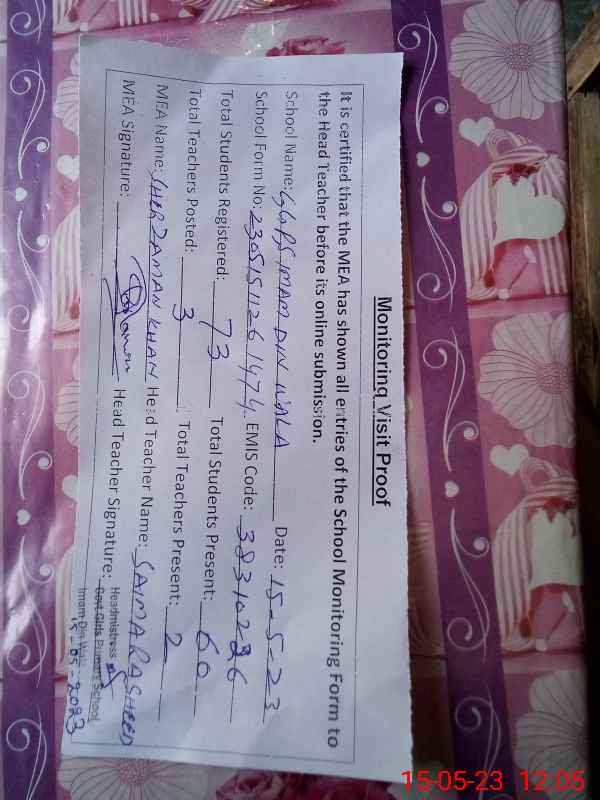 Monitoring Visit Proof
It is certified that the MEA has shown all entries of the School Monitoring Form to
the Head Teacher before its online submission.
School Name: GGPS IMAM DIN WALA Date: 15-5-23
School Form No: 2305151126 1474 EMIS Code: 38310226
Total Students Registered: 73 Total Students Present: 60
Total Teachers Posted: 3 Total Teachers Present: 2
MEA Name: SHER ZAMAN KHAN Head Teacher Name: SAIMA RASHEED
MEA Signature: Head Teacher Signature:
Headmistress
Govt Girls Primary School
Imam Din Wala
15-05-2023
15-05-23 12:05